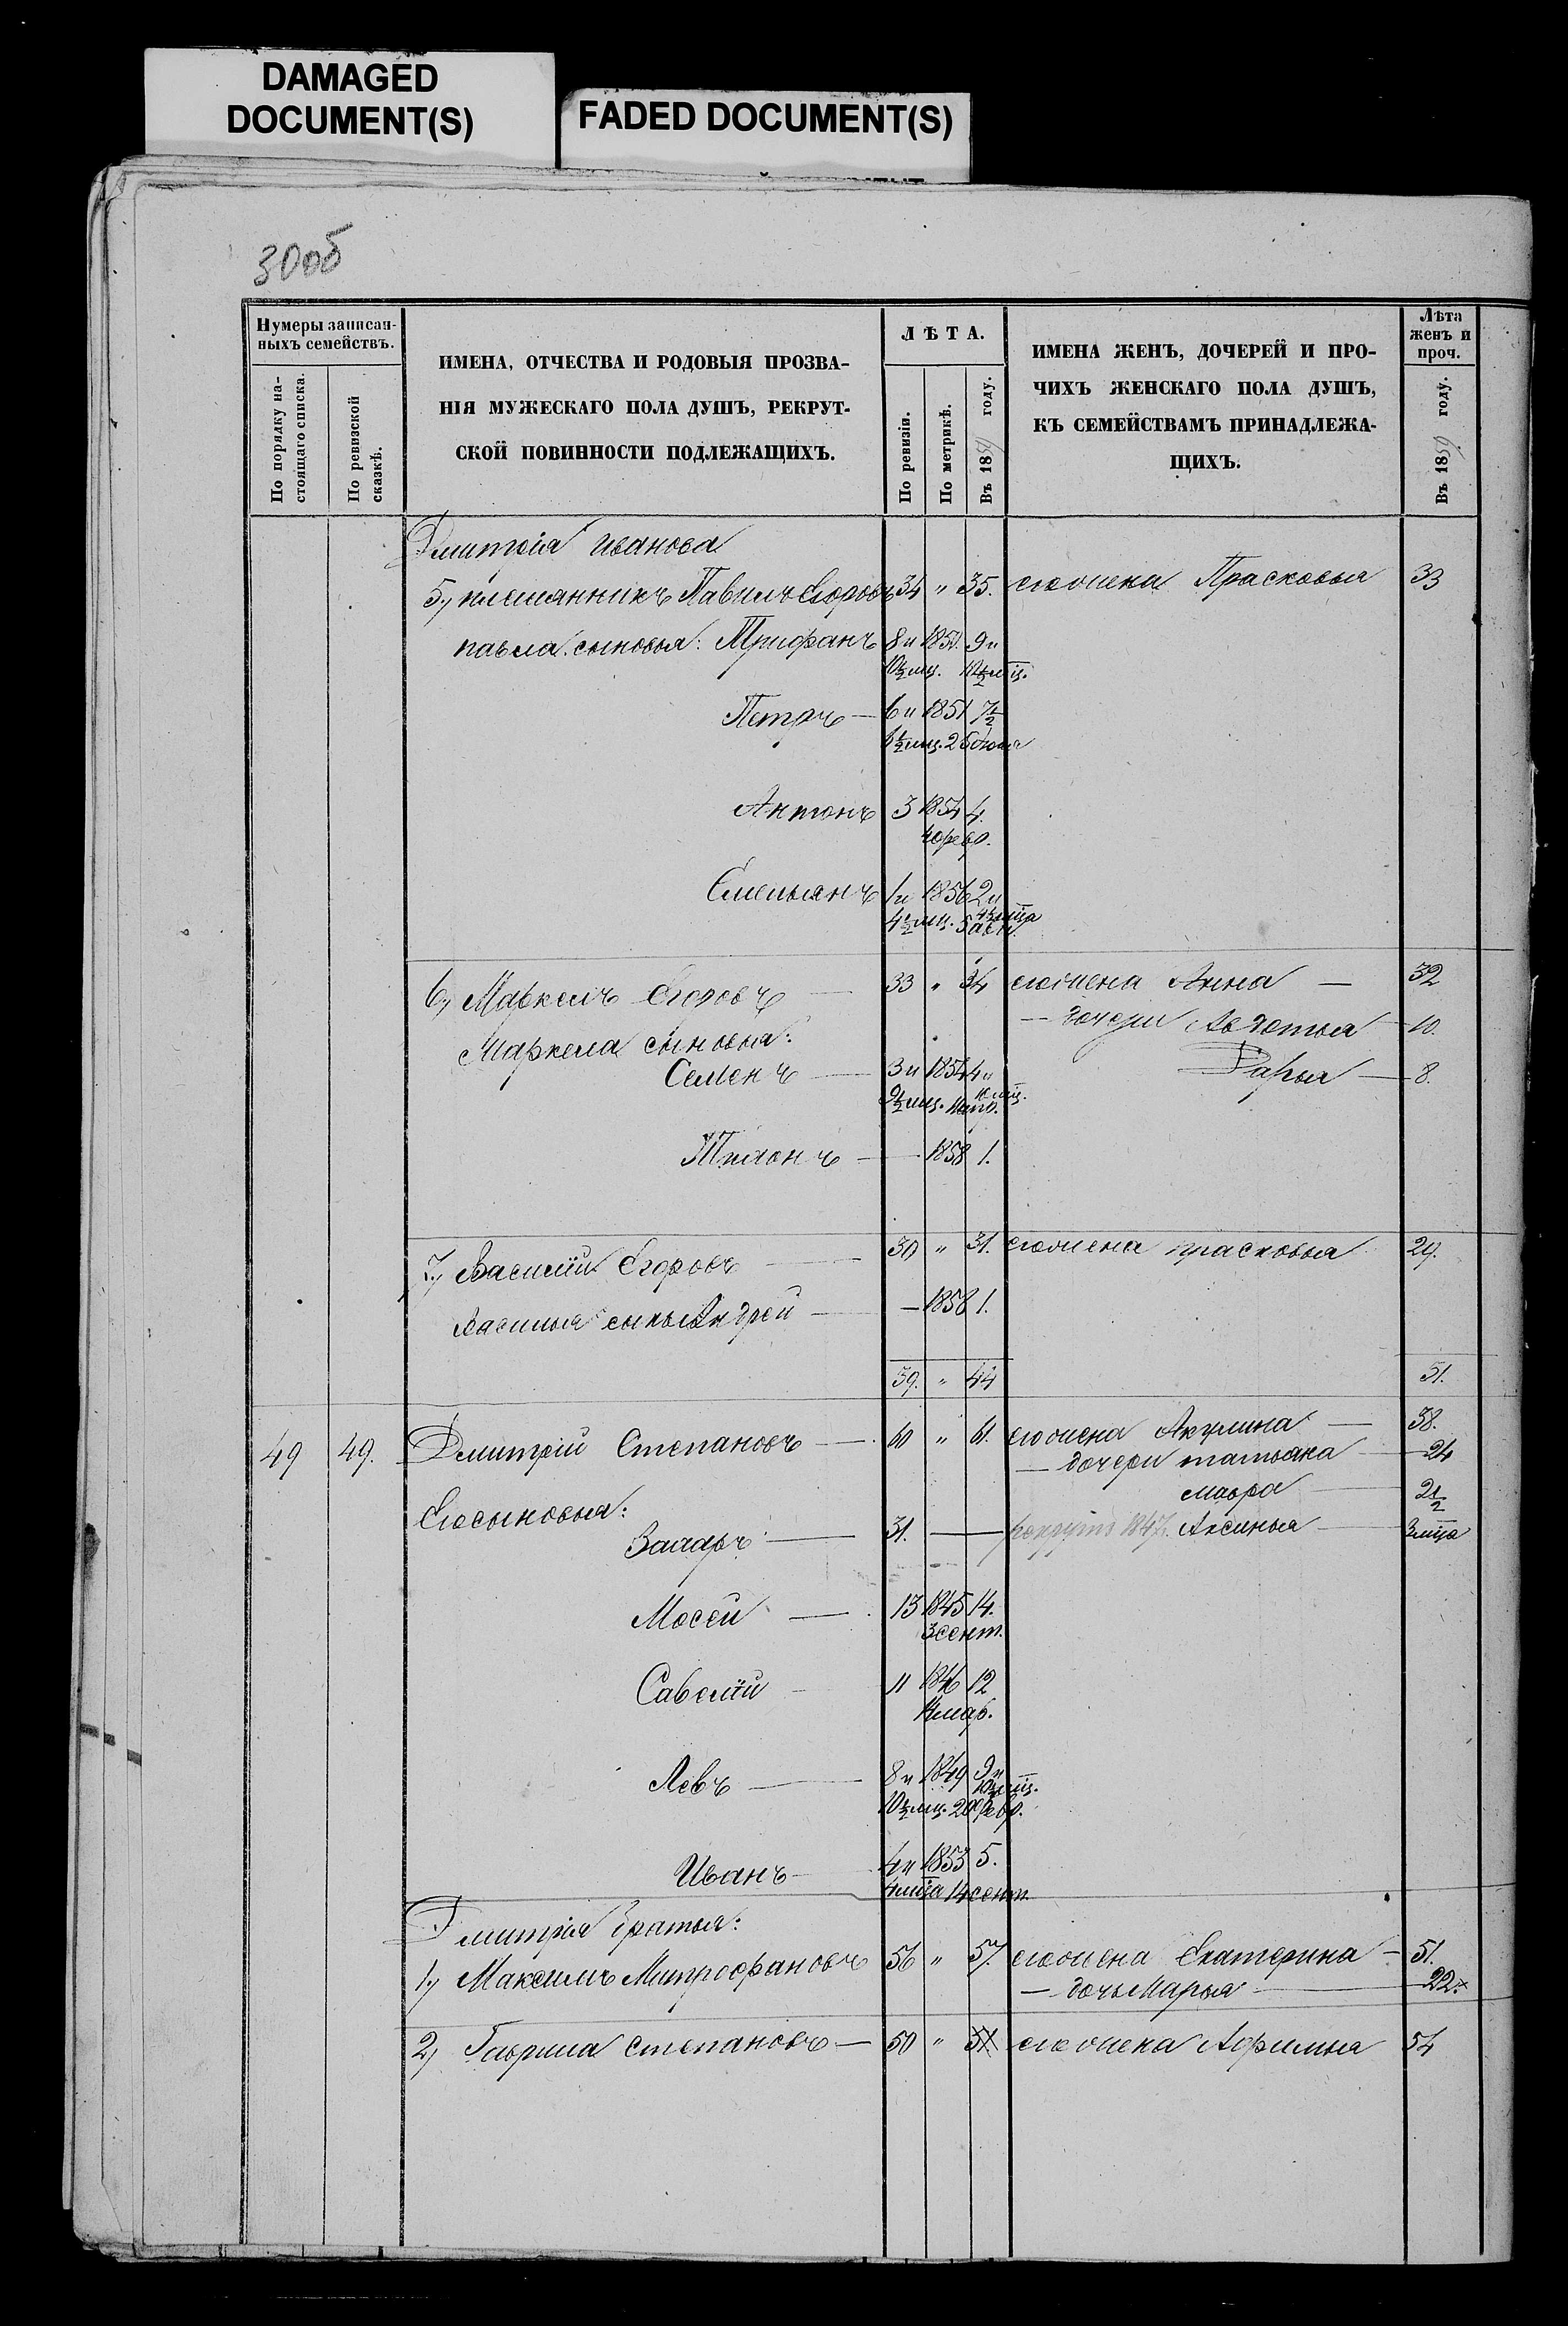 DAMAGED
DOCUMENT(S)
FADED DOCUMENT(S)
30об
Нумеры записан-
ныхъ семействъ.
По порядку на-
стоящаго списка.
По ревизской
сказкѣ.
ИМЕНА, ОТЧЕСТВА И РОДОВЫЯ ПРОЗВА-
НІЯ МУЖЕСКАГО ПОЛА ДУШЪ, РЕКРУТ-
СКОЙ ПОВИННОСТИ ПОДЛЕЖАЩИХЪ.
ЛѢТА.
По ревизіи.
По метрикѣ.
Въ 1859 году.
ИМЕНА ЖЕНЪ, ДОЧЕРЕЙ И ПРО-
ЧИХЪ ЖЕНСКАГО ПОЛА ДУШЪ,
КЪ СЕМЕЙСТВАМЪ ПРИНАДЛЕЖА-
ЩИХЪ.
Лѣта
женъ и
проч.
Въ 1859 году.
Дмитрія Иванова
5., племянникъ Павилъ Егоровъ 34 " 35. его жена Прасковья 33
павла сыновья: Трифанъ 8 и 1850. 9 и
10½ мц. 10½ мц.
Петръ — 6 и 1851 7½
6½ мц. 25 Июня
Антонъ 3 1854 4.
4 февр.
Емельянъ 1 и 1856 2 и
4½ мц. 5 авг. 4½ мца
6., Маркелъ Егоровъ — 33 " 34 его жена Анна — 32
— дочери Авдотья — 10.
Маркела сыновья:
Семенъ — 3 и 1854 4 и Дарья — 8.
9½ мц. мар. мц.
Тихонъ — — 1858 1.
7., Василій Егоровъ — 30 " 31. его жена прасковья 29.
Василья сынъ Андрей — — 1858 1.
39. " 44 51.
49 49. Дмитрій Степановъ — 60 " 61. его жена Акулина — 38.
— дочери татьяна — 24
мавра — 2½
Его сыновья:
Захаръ — 31. — рекрутъ 1847. Аксинья — 3 мца
Мосей — 13 1845 14.
3 сент.
Савелій — 11 1846 12
14 мар.
Левъ — 8 и 1849 9 и
10½ мц. 20 февр. 10½ мц.
Иванъ — 4 и 1853 5.
4 мца 14 сент.
Дмитрія братья:
1., Максимъ Митрофановъ 56 " 57. его жена Екатерина — 51.
— дочь Марья — 22.
2., Гаврила Степановъ — 50 " 51 его жена Афимья 54